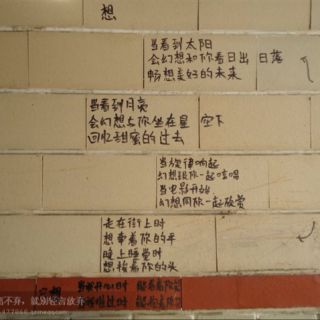 想
当看到太阳
会幻想和你看日出 日落
畅想美好的未来
当看到月亮
会幻想与你坐在星 空下
回忆甜蜜的过去
当旋律响起
幻想跟你一起哼唱
当电影开始
幻想同你一起欣赏
走在街上时
想牵着你的手
晚上睡觉时
想挨着你的头
不弃，就别轻言放弃